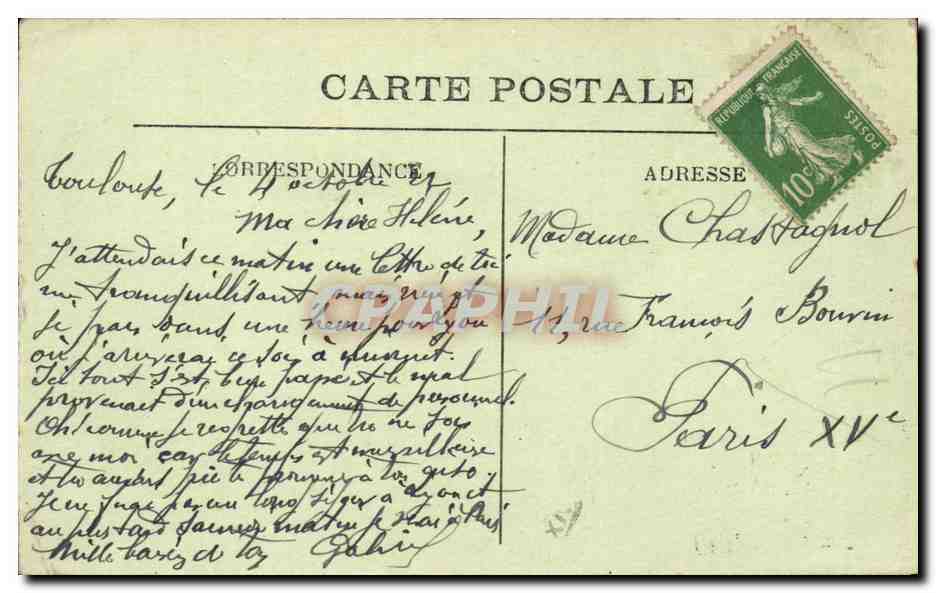 CARTE POSTALE
CORRESPONDANCE
ADRESSE
RÉPUBLIQUE FRANÇAISE
POSTES
10c
CPAPHIL
Toulouse, le 4 octobre 22
Ma chère Hélène,
J'attendais ce matin une lettre de toi
me tranquillisant, mais rien et
je pars dans une heure pour Lyon
où j'arriverai ce soir à minuit.
Ici tout s'est bien passé et le mal
provenait d'un changement de personnel.
Oh! comme je regrette que tu ne sois
avec moi car le temps est
et tu aurais pu te promener à ton
Je ne pas un long séjour à Lyon et
au plus tard samedi matin je serai à Paris
Mille baisers de ton Gabriel
Madame Chastagnol
11, rue François Bonvin
Paris XVe